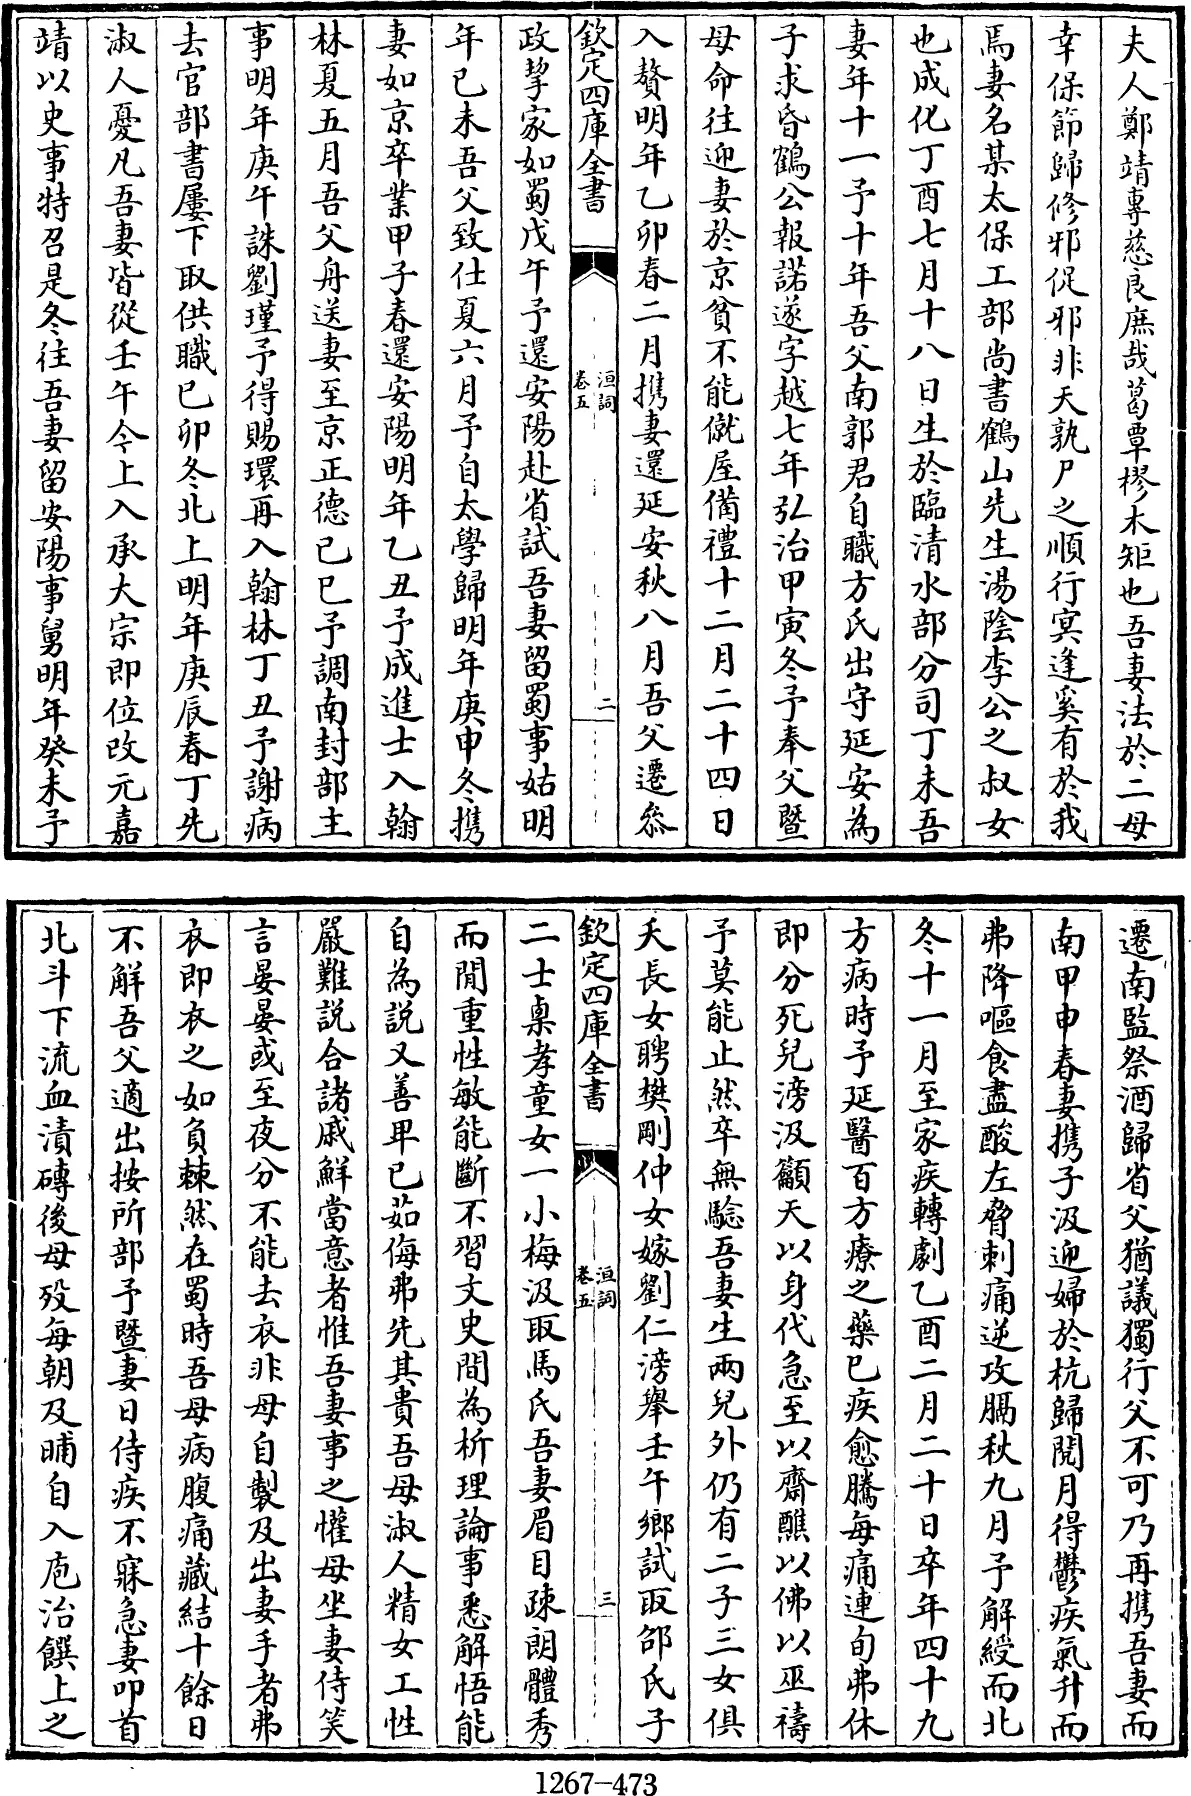 夫人鄭靖專慈良庶哉葛覃樛木矩也吾妻法於二母
幸保節歸修邪促邪非天孰尸之順行冥逢奚有於我
焉妻名某太保工部尚書鶴山先生湯陰李公之叔女
也成化丁酉七月十八日生於臨清水部分司丁未吾
妻年十一予十年吾父南郭君自職方氏出守延安為
子求昏鶴公報諾遂字越七年弘治甲寅冬予奉父暨
母命往迎妻於京貧不能僦屋備禮十二月二十四日
入贅明年乙卯春二月携妻還延安秋八月吾父遷叅
欽定四庫全書
洹詞
卷五
二
政挈家如蜀戊午予還安陽赴省試吾妻留蜀事姑明
年己未吾父致仕夏六月予自太學歸明年庚申冬携
妻如京卒業甲子春還安陽明年乙丑予成進士入翰
林夏五月吾父舟送妻至京正德己巳予調南封部主
事明年庚午誅劉瑾予得賜環再入翰林丁丑予謝病
去官部書屢下取供職己卯冬北上明年庚辰春丁先
淑人憂凡吾妻皆從壬午今上入承大宗即位改元嘉
靖以史事特召是冬往吾妻留安陽事舅明年癸未予
遷南監祭酒歸省父猶議獨行父不可乃再携吾妻而
南甲申春妻携子汲迎婦於杭歸閱月得鬱疾氣升而
弗降嘔食盡酸左脅刺痛逆攻膈秋九月予解綬而北
冬十一月至家疾轉劇乙酉二月二十日卒年四十九
方病時予延醫百方療之藥已疾愈騰每痛連旬弗休
即分死兒滂汲籲天以身代急至以齋醮以佛以巫禱
予莫能止然卒無驗吾妻生兩兒外仍有二子三女俱
夭長女聘樊剛仲女嫁劉仁滂舉壬午鄉試取邵氏子
欽定四庫全書
洹詞
卷五
三
二士㮚孝童女一小梅汲取馬氏吾妻眉目疎朗體秀
而閒重性敏能斷不習文史間為析理論事悉解悟能
自為說又善卑已茹侮弗先其貴吾母淑人精女工性
嚴難説合諸戚鮮當意者惟吾妻事之懽母坐妻侍笑
言晏晏或至夜分不能去衣非母自製及出妻手者弗
衣即衣之如負棘然在蜀時吾母病腹痛藏結十餘日
不解吾父適出按所部予暨妻日侍疾不寐急妻叩首
北斗下流血漬磚後母歿每朝及晡自入庖治饌上之
1267-473